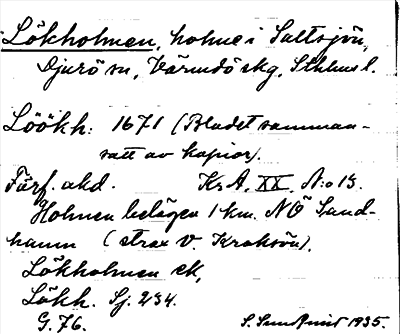 Lökholmen, holme i Saltsjön,
Djurö sn, Värmdö skg, Sthlms l.
Löökh: 1671 (Bladet samman-
satt av kopior).
Förf. okd. Kr.A. XX. N:o 13.
Holmen belägen 1 km. NÖ Sand-
hamn (strax v. Kroksön).
Lökholmen ek,
Lökh. Sj. 234.
G. 76. S. Sundquist 1935.